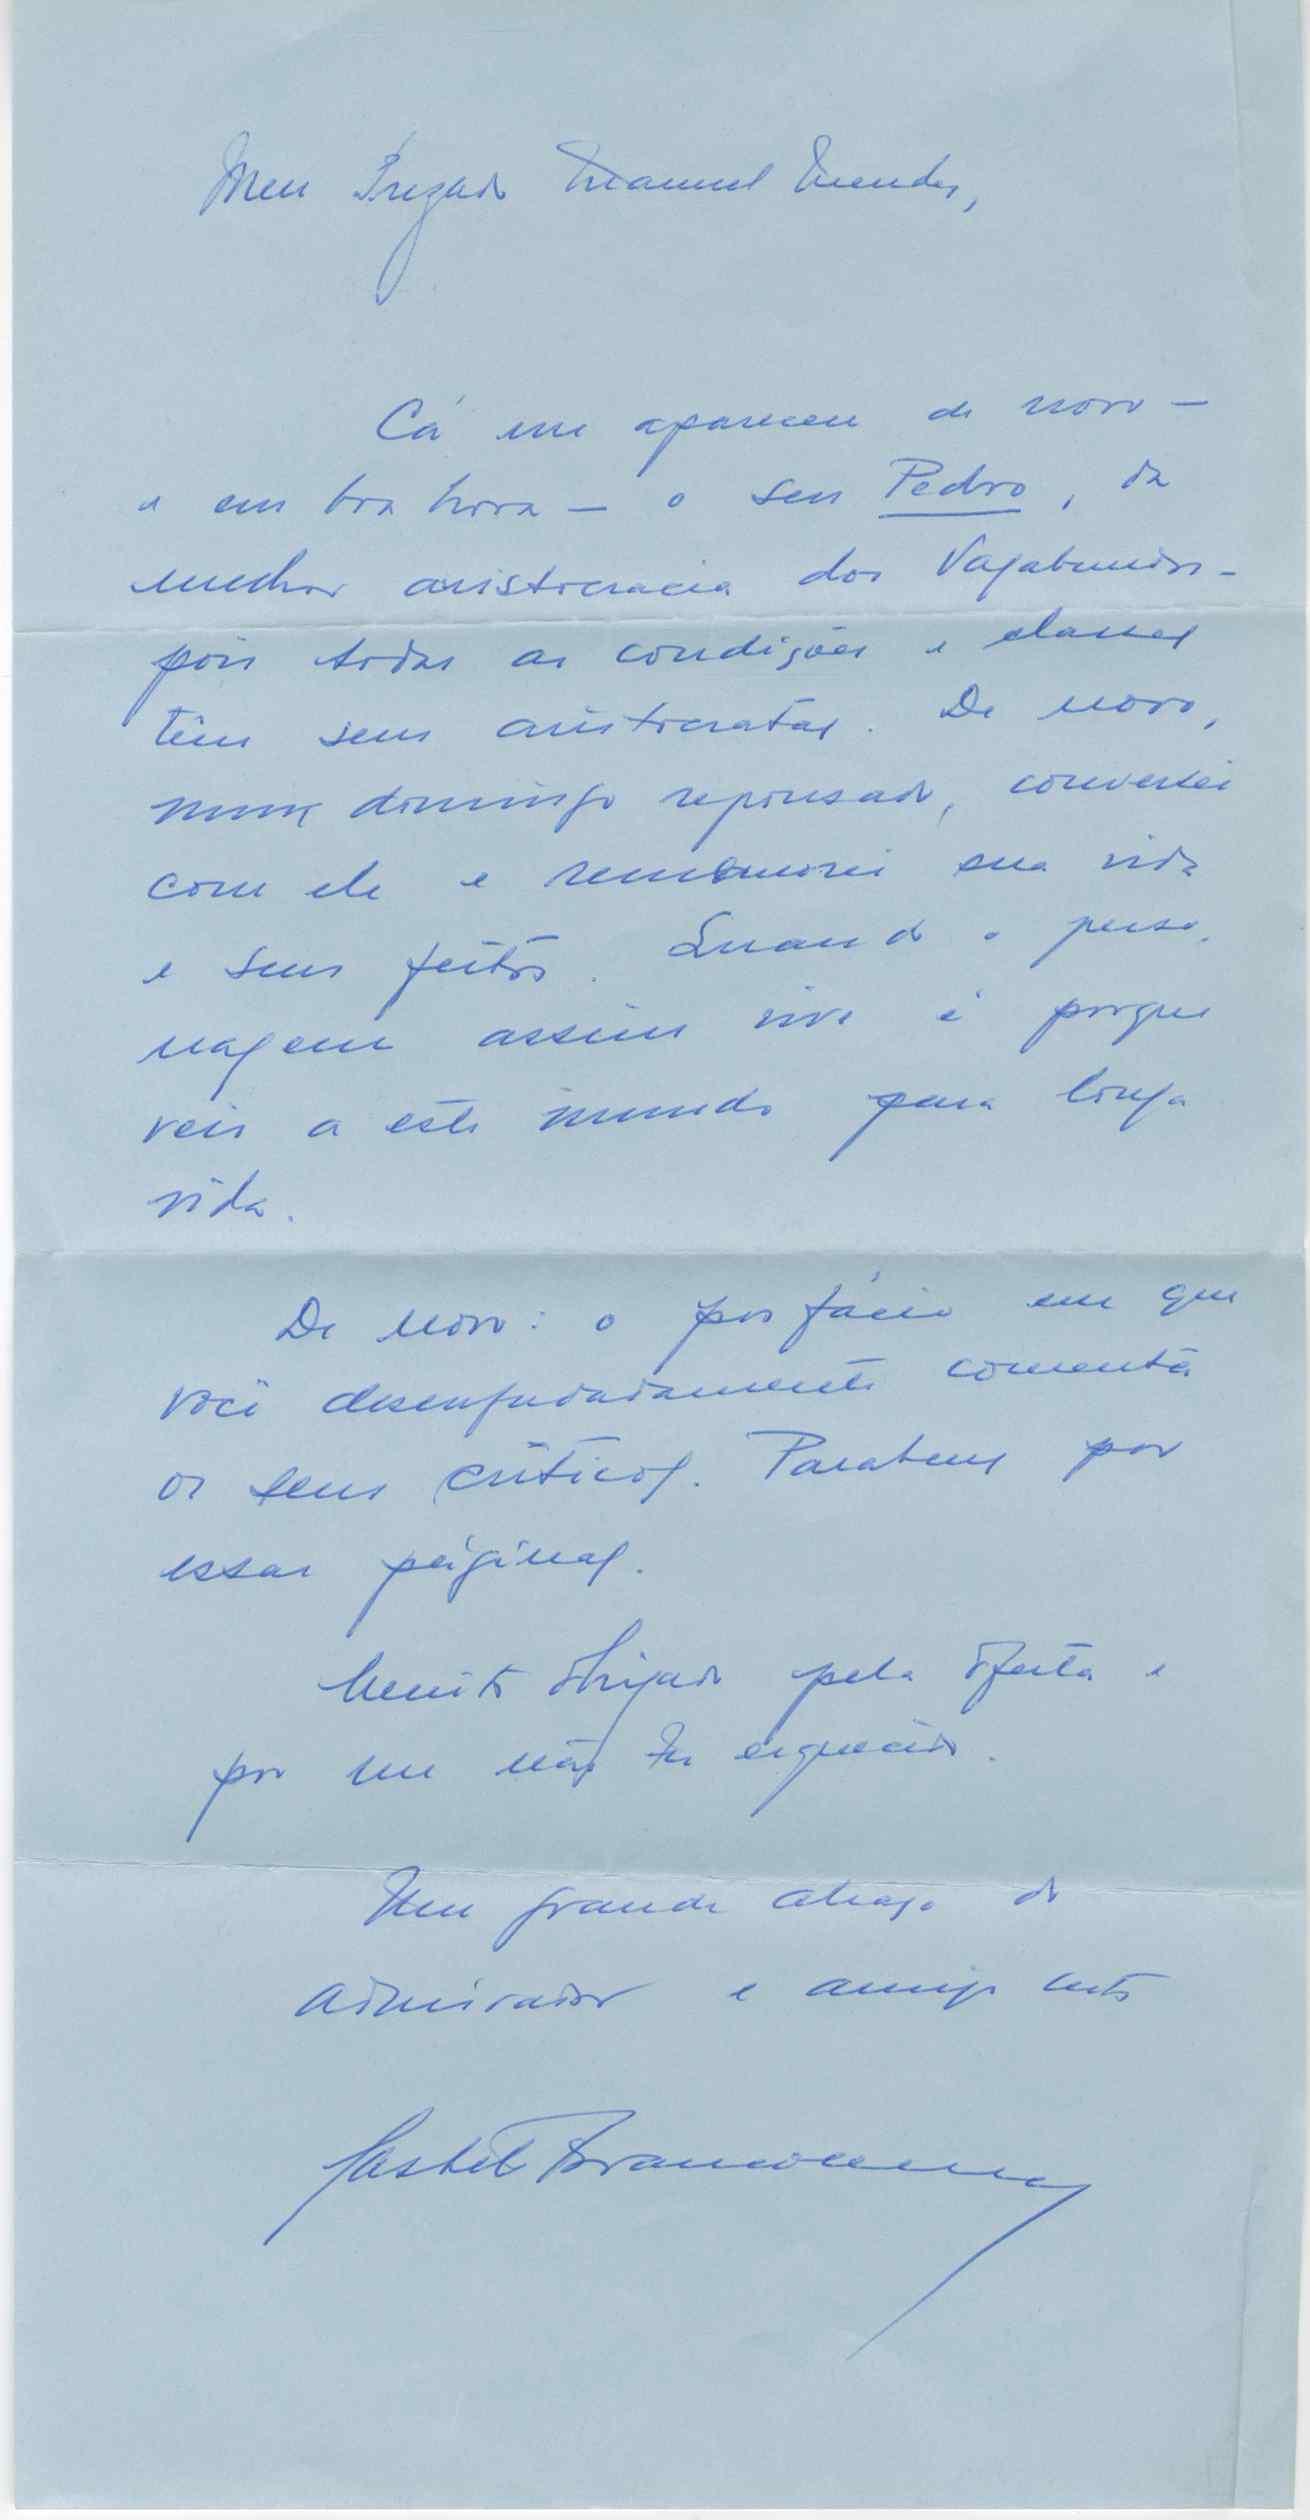 Meu Prezado Manuel Mendes,
Cá me apareceu de novo —
e em boa hora — o seu Pedro, da
melhor aristocracia dos Vagabundos -
pois todas as condições e classes
têm seus aristocratas. De novo,
num domingo repousado, conversei
com ele e rememorei sua vida
e seus feitos. Quando o perso-
nagem assim vive é porque
veio a este mundo para longa
vida.
De novo: o posfácio em que
você desenfadadamente comenta
os seus críticos. Parabens por
essas páginas.
Muito obrigado pela oferta e
por me não ter esquecido.
Um grande abraço do
admirador e amigo certo
Castelo Branco